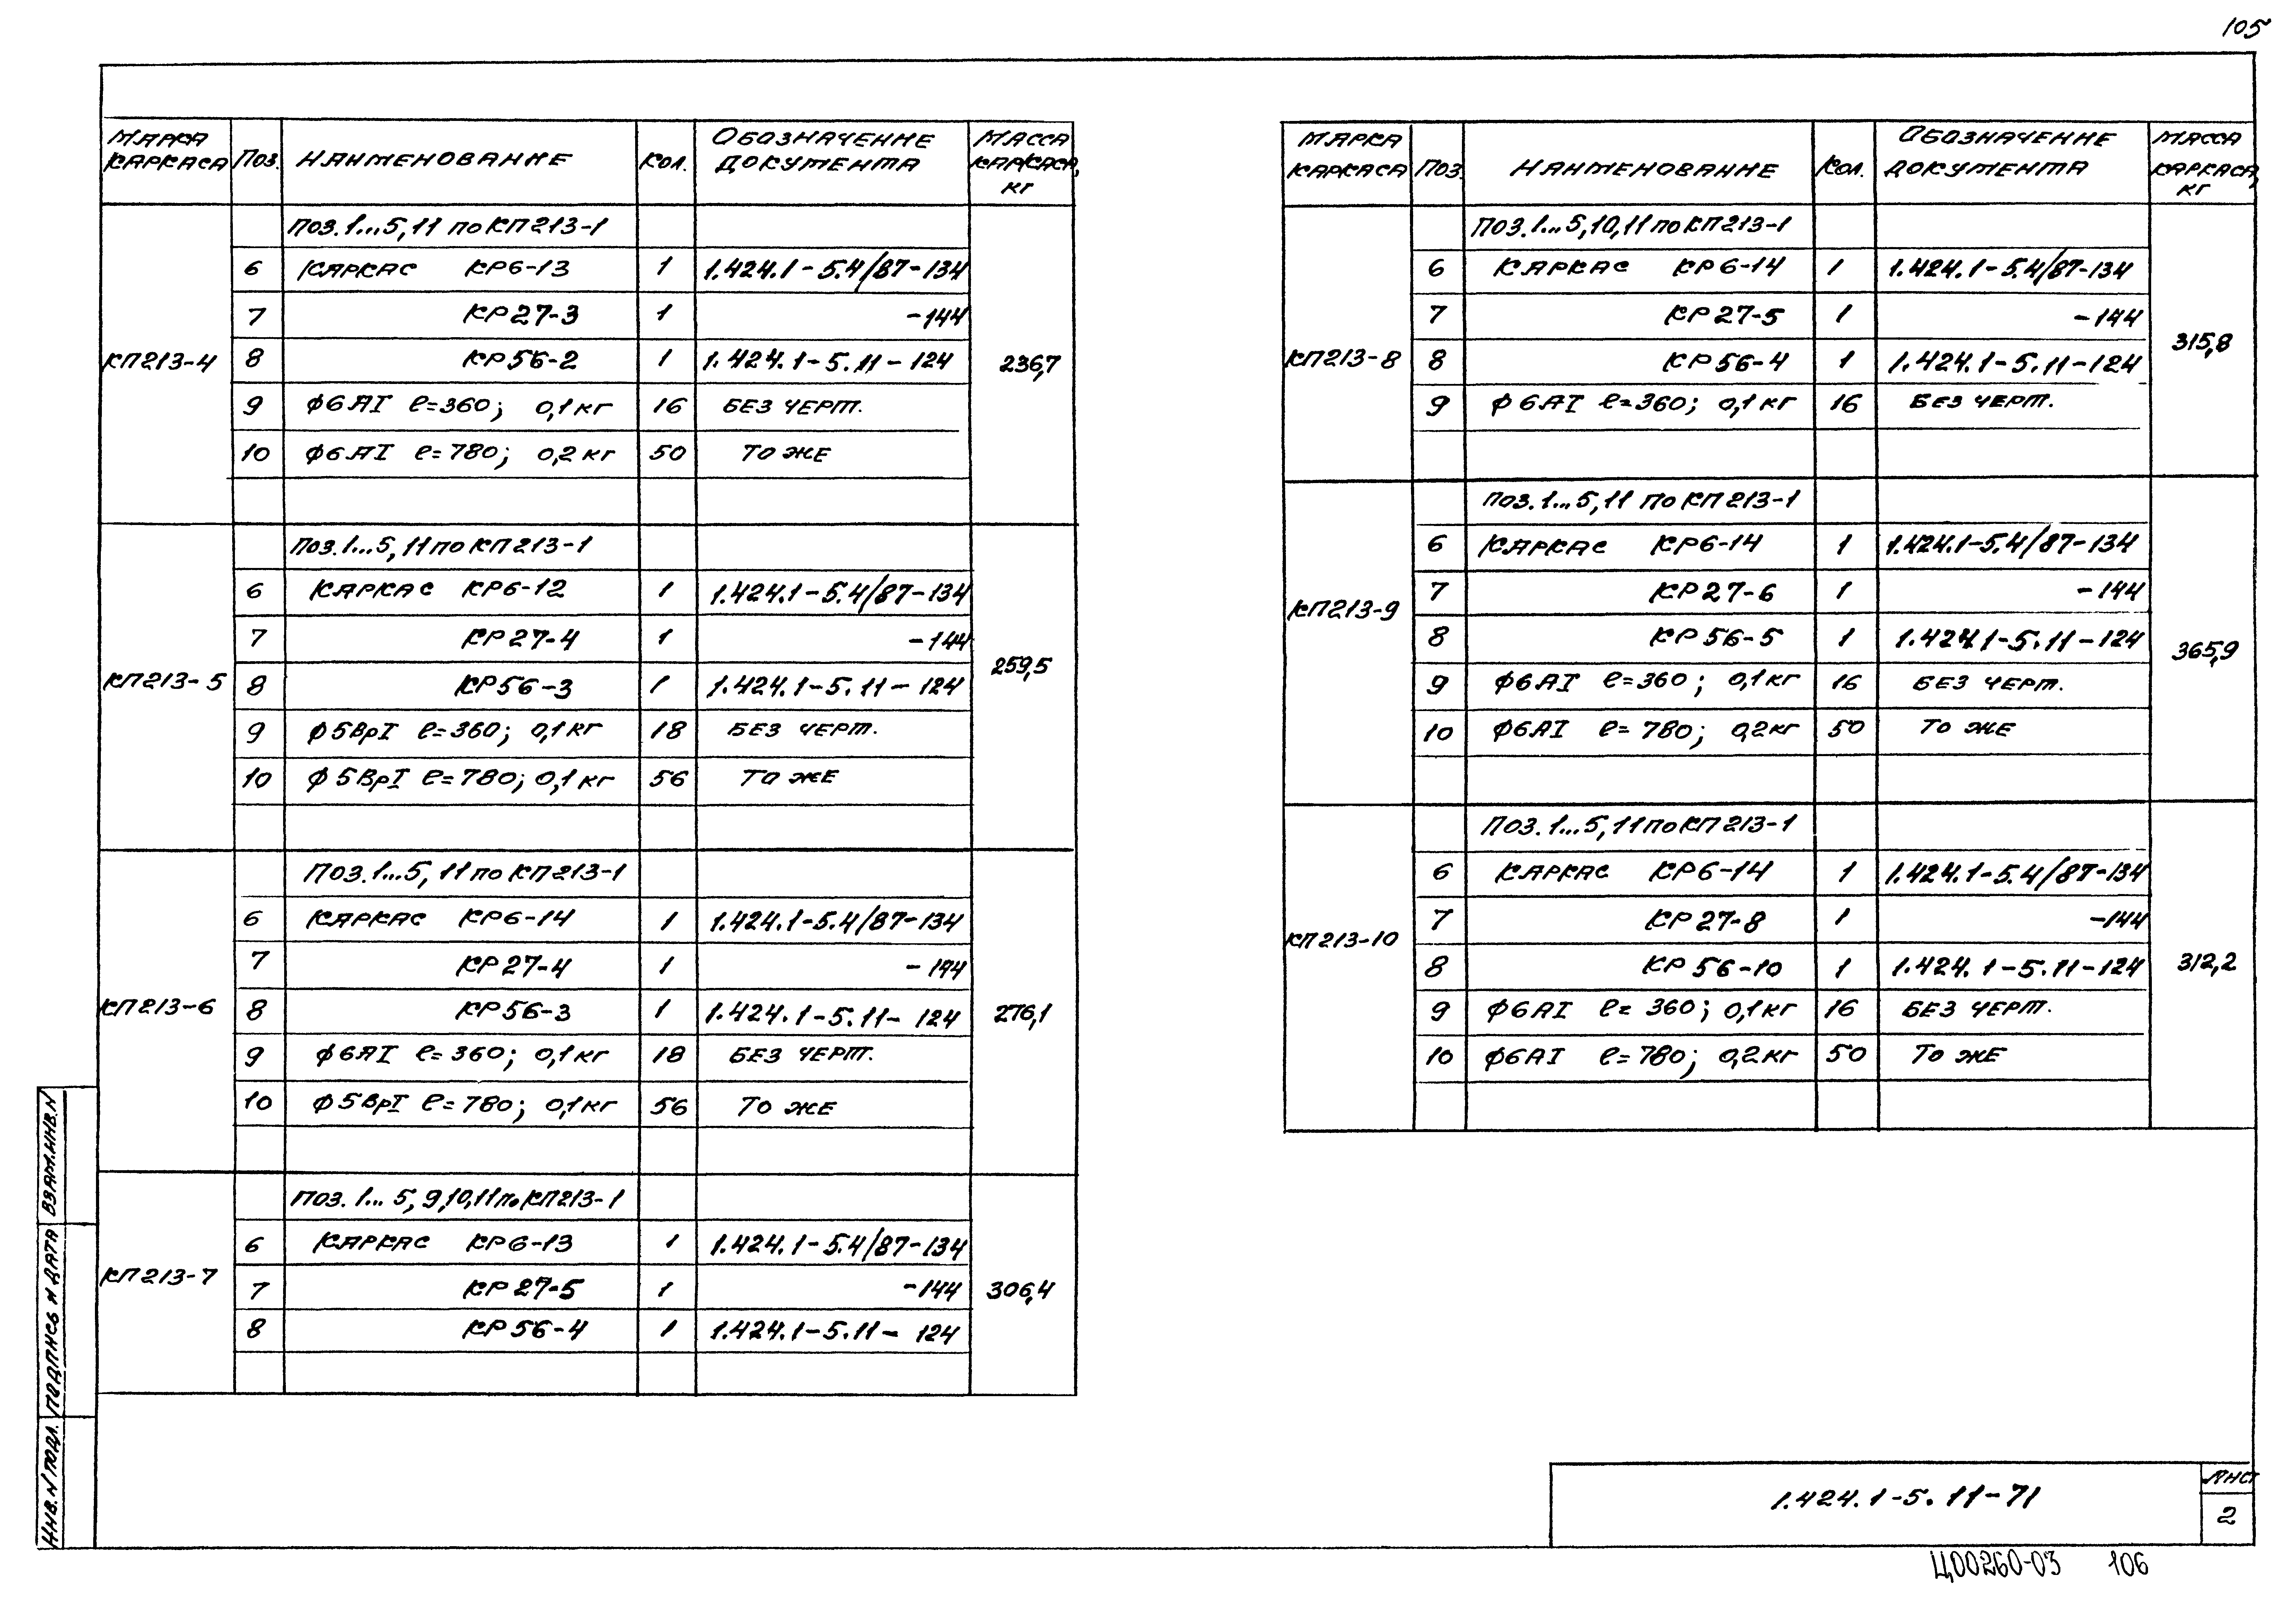 105
Марка каркаса | Поз. | Наименование | Кол. | Обозначение документа | Масса каркаса, кг
Поз. 1...5, 11 по КП213-1
КП213-4 | 236,7
6 | Каркас КР6-13 | 1 | 1.424.1-5.4/87-134
7 | КР27-3 | 1 | -144
8 | КР56-2 | 1 | 1.424.1-5.11-124
9 | ф6АI ℓ=360; 0,1 кг | 16 | без черт.
10 | ф6АI ℓ=780; 0,2 кг | 50 | то же
Поз. 1...5, 11 по КП213-1
КП213-5 | 259,5
6 | Каркас КР6-12 | 1 | 1.424.1-5.4/87-134
7 | КР27-4 | 1 | -144
8 | КР56-3 | 1 | 1.424.1-5.11-124
9 | ф5ВрI ℓ=360; 0,1 кг | 18 | без черт.
10 | ф5ВрI ℓ=780; 0,1 кг | 56 | то же
Поз. 1...5, 11 по КП213-1
КП213-6 | 276,1
6 | Каркас КР6-14 | 1 | 1.424.1-5.4/87-134
7 | КР27-4 | 1 | -144
8 | КР56-3 | 1 | 1.424.1-5.11-124
9 | ф6АI ℓ=360; 0,1 кг | 18 | без черт.
10 | ф5ВрI ℓ=780; 0,1 кг | 56 | то же
Поз. 1...5, 9, 10, 11 по КП213-1
КП213-7 | 306,4
6 | Каркас КР6-13 | 1 | 1.424.1-5.4/87-134
7 | КР27-5 | 1 | -144
8 | КР56-4 | 1 | 1.424.1-5.11-124
Марка каркаса | Поз. | Наименование | Кол. | Обозначение документа | Масса каркаса, кг
Поз. 1...5, 10, 11 по КП213-1
КП213-8 | 315,8
6 | Каркас КР6-14 | 1 | 1.424.1-5.4/87-134
7 | КР27-5 | 1 | -144
8 | КР56-4 | 1 | 1.424.1-5.11-124
9 | ф6АI ℓ=360; 0,1 кг | 16 | без черт.
Поз. 1...5, 11 по КП213-1
КП213-9 | 365,9
6 | Каркас КР6-14 | 1 | 1.424.1-5.4/87-134
7 | КР27-6 | 1 | -144
8 | КР56-5 | 1 | 1.424.1-5.11-124
9 | ф6АI ℓ=360; 0,1 кг | 16 | без черт.
10 | ф6АI ℓ=780; 0,2 кг | 50 | то же
Поз. 1...5, 11 по КП213-1
КП213-10 | 312,2
6 | Каркас КР6-14 | 1 | 1.424.1-5.4/87-134
7 | КР27-8 | 1 | -144
8 | КР56-10 | 1 | 1.424.1-5.11-124
9 | ф6АI ℓ=360; 0,1 кг | 16 | без черт.
10 | ф6АI ℓ=780; 0,2 кг | 50 | то же
Инв. N подл. | Подпись и дата | Взам.инв.N
1.424.1-5.11-71
Лист
2
Ц00260-03 106